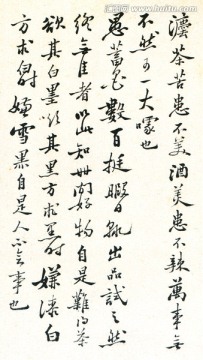 濃茶苦患不美酒美患不辣萬事無
不然可一大噱也
愚蓄墨數百挺暇日輒出品試之然
終無佳者以此知世間好物自是難得茶
欲其白墨欲其黑方求黑時嫌漆白
方求白時嫌雪黑自是人不會事也